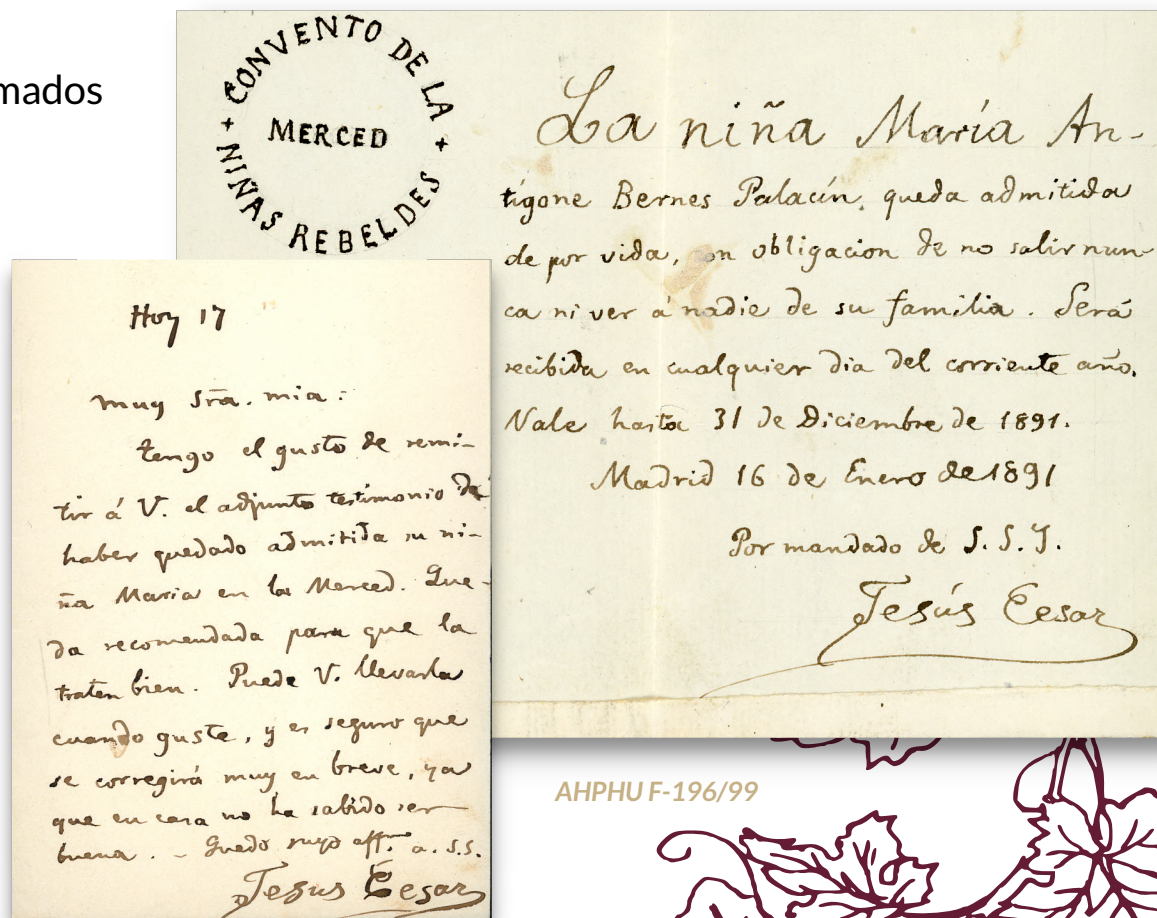 mados
CONVENTO DE LA
MERCED
NIÑAS REBELDES
La niña María An-
tígone Bernes Palacín, queda admitida
de por vida, con obligacion de no salir nun-
ca ni ver á nadie de su familia. Será
recibida en cualquier dia del corriente año.
Vale hasta 31 de Diciembre de 1891.
Madrid 16 de Enero de 1891
Por mandado de S. S. Y.
Jesús Cesar
Hoy 17
muy Sra. mia:
tengo el gusto de remi-
tir á V. el adjunto testimonio de
haber quedado admitida su ni-
ña Maria en la Merced. Que-
da recomendada para que la
traten bien. Puede V. llevarla
cuando guste, y es seguro que
se corregirá muy en breve, ya
que en casa no ha sabido ser
buena. - Quedo suyo aff. a. s.s.
Jesus Cesar
AHPHU F-196/99